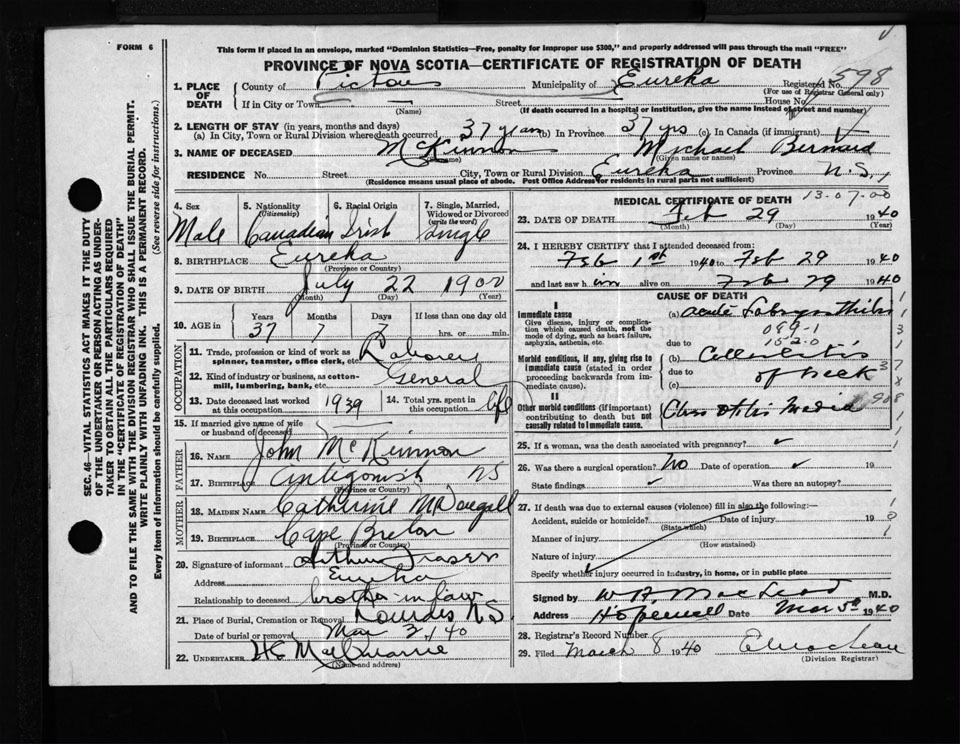 FORM 6
This form if placed in an envelope, marked "Dominion Statistics—Free, penalty for improper use $300," and properly addressed will pass through the mail "FREE"
PROVINCE OF NOVA SCOTIA—CERTIFICATE OF REGISTRATION OF DEATH
1. PLACE OF DEATH County of Pictou Municipality of Eureka Registered No. 598
(For use of Registrar General only)
If in City or Town Street House No.
(Name) (If death occurred in hospital or institution, give the name instead of street and number)
2. LENGTH OF STAY (in years, months and days)
(a) In City, Town or Rural Division where death occurred 37 years (b) In Province 37 yrs (c) In Canada (if immigrant)
3. NAME OF DECEASED McKinnon Michael Bernard
(Given name or names)
RESIDENCE No. Street City, Town or Rural Division Eureka Province N.S.
(Residence means usual place of abode. Post Office Address for residents in rural parts not sufficient)
SEC. 46—VITAL STATISTICS ACT MAKES IT THE DUTY
OF THE UNDERTAKER OR PERSON ACTING AS UNDER-
TAKER TO OBTAIN ALL THE PARTICULARS REQUIRED
IN THE "CERTIFICATE OF REGISTRATION OF DEATH"
AND TO FILE THE SAME WITH THE DIVISION REGISTRAR WHO SHALL ISSUE THE BURIAL PERMIT.
WRITE PLAINLY WITH UNFADING INK. THIS IS A PERMANENT RECORD.
Every item of Information should be carefully supplied. (See reverse side for instructions.)
4. Sex 5. Nationality (Citizenship) 6. Racial Origin 7. Single, Married, Widowed or Divorced (write the word)
Male Canadian Irish Single
8. BIRTHPLACE Eureka
(Province or Country)
9. DATE OF BIRTH July 22 1900
(Month) (Day) (Year)
10. AGE in Years Months Days If less than one day old
37 7 7 hrs. or min.
OCCUPATION
11. Trade, profession or kind of work as spinner, teamster, office clerk, etc. Laborer
12. Kind of industry or business, as cotton-mill, lumbering, bank, etc. General
13. Date deceased last worked at this occupation 1939 14. Total yrs. spent in this occupation life
15. If married give name of wife or husband of deceased
FATHER
16. NAME John McKinnon
17. BIRTHPLACE Antigonish NS
(Province or Country)
MOTHER
18. MAIDEN NAME Catherine McDougall
19. BIRTHPLACE Cape Breton
(Province or Country)
20. Signature of informant Arthur Fraser
Address Eureka
Relationship to deceased brother-in-law
21. Place of Burial, Cremation or Removal Lourdes N.S.
Date of burial or removal Mar 2/40
22. UNDERTAKER
(Name and address)
MEDICAL CERTIFICATE OF DEATH 13-07-00
23. DATE OF DEATH Feb 29 1940
(Month) (Day) (Year)
24. I HEREBY CERTIFY that I attended deceased from:
Feb 1st 1940 to Feb 29 1940
and last saw him alive on Feb 29 1940
CAUSE OF DEATH
I
Immediate cause
Give disease, injury or complication which caused death, not the mode of dying, such as heart failure, asphyxia, asthenia, etc.
(a) acute Labrynthitis
089-1
due to 152-0
Morbid conditions, if any, giving rise to immediate cause (stated in order proceeding backwards from immediate cause).
(b) Cellulitis
due to of neck
(c)
II
Other morbid conditions (if important) contributing to death but not causally related to immediate cause.
Otitis Media
25. If a woman, was the death associated with pregnancy?
26. Was there a surgical operation? No Date of operation 19
State findings Was there an autopsy?
27. If death was due to external causes (violence) fill in also the following:—
Accident, suicide or homicide? Date of injury 19
(State which)
Manner of injury
(How sustained)
Nature of injury
Specify whether injury occurred in industry, in home, or in public place
Signed by MacLeod M.D.
Address Hopewell Date Mar 5 1940
28. Registrar's Record Number
29. Filed March 8 1940
(Division Registrar)